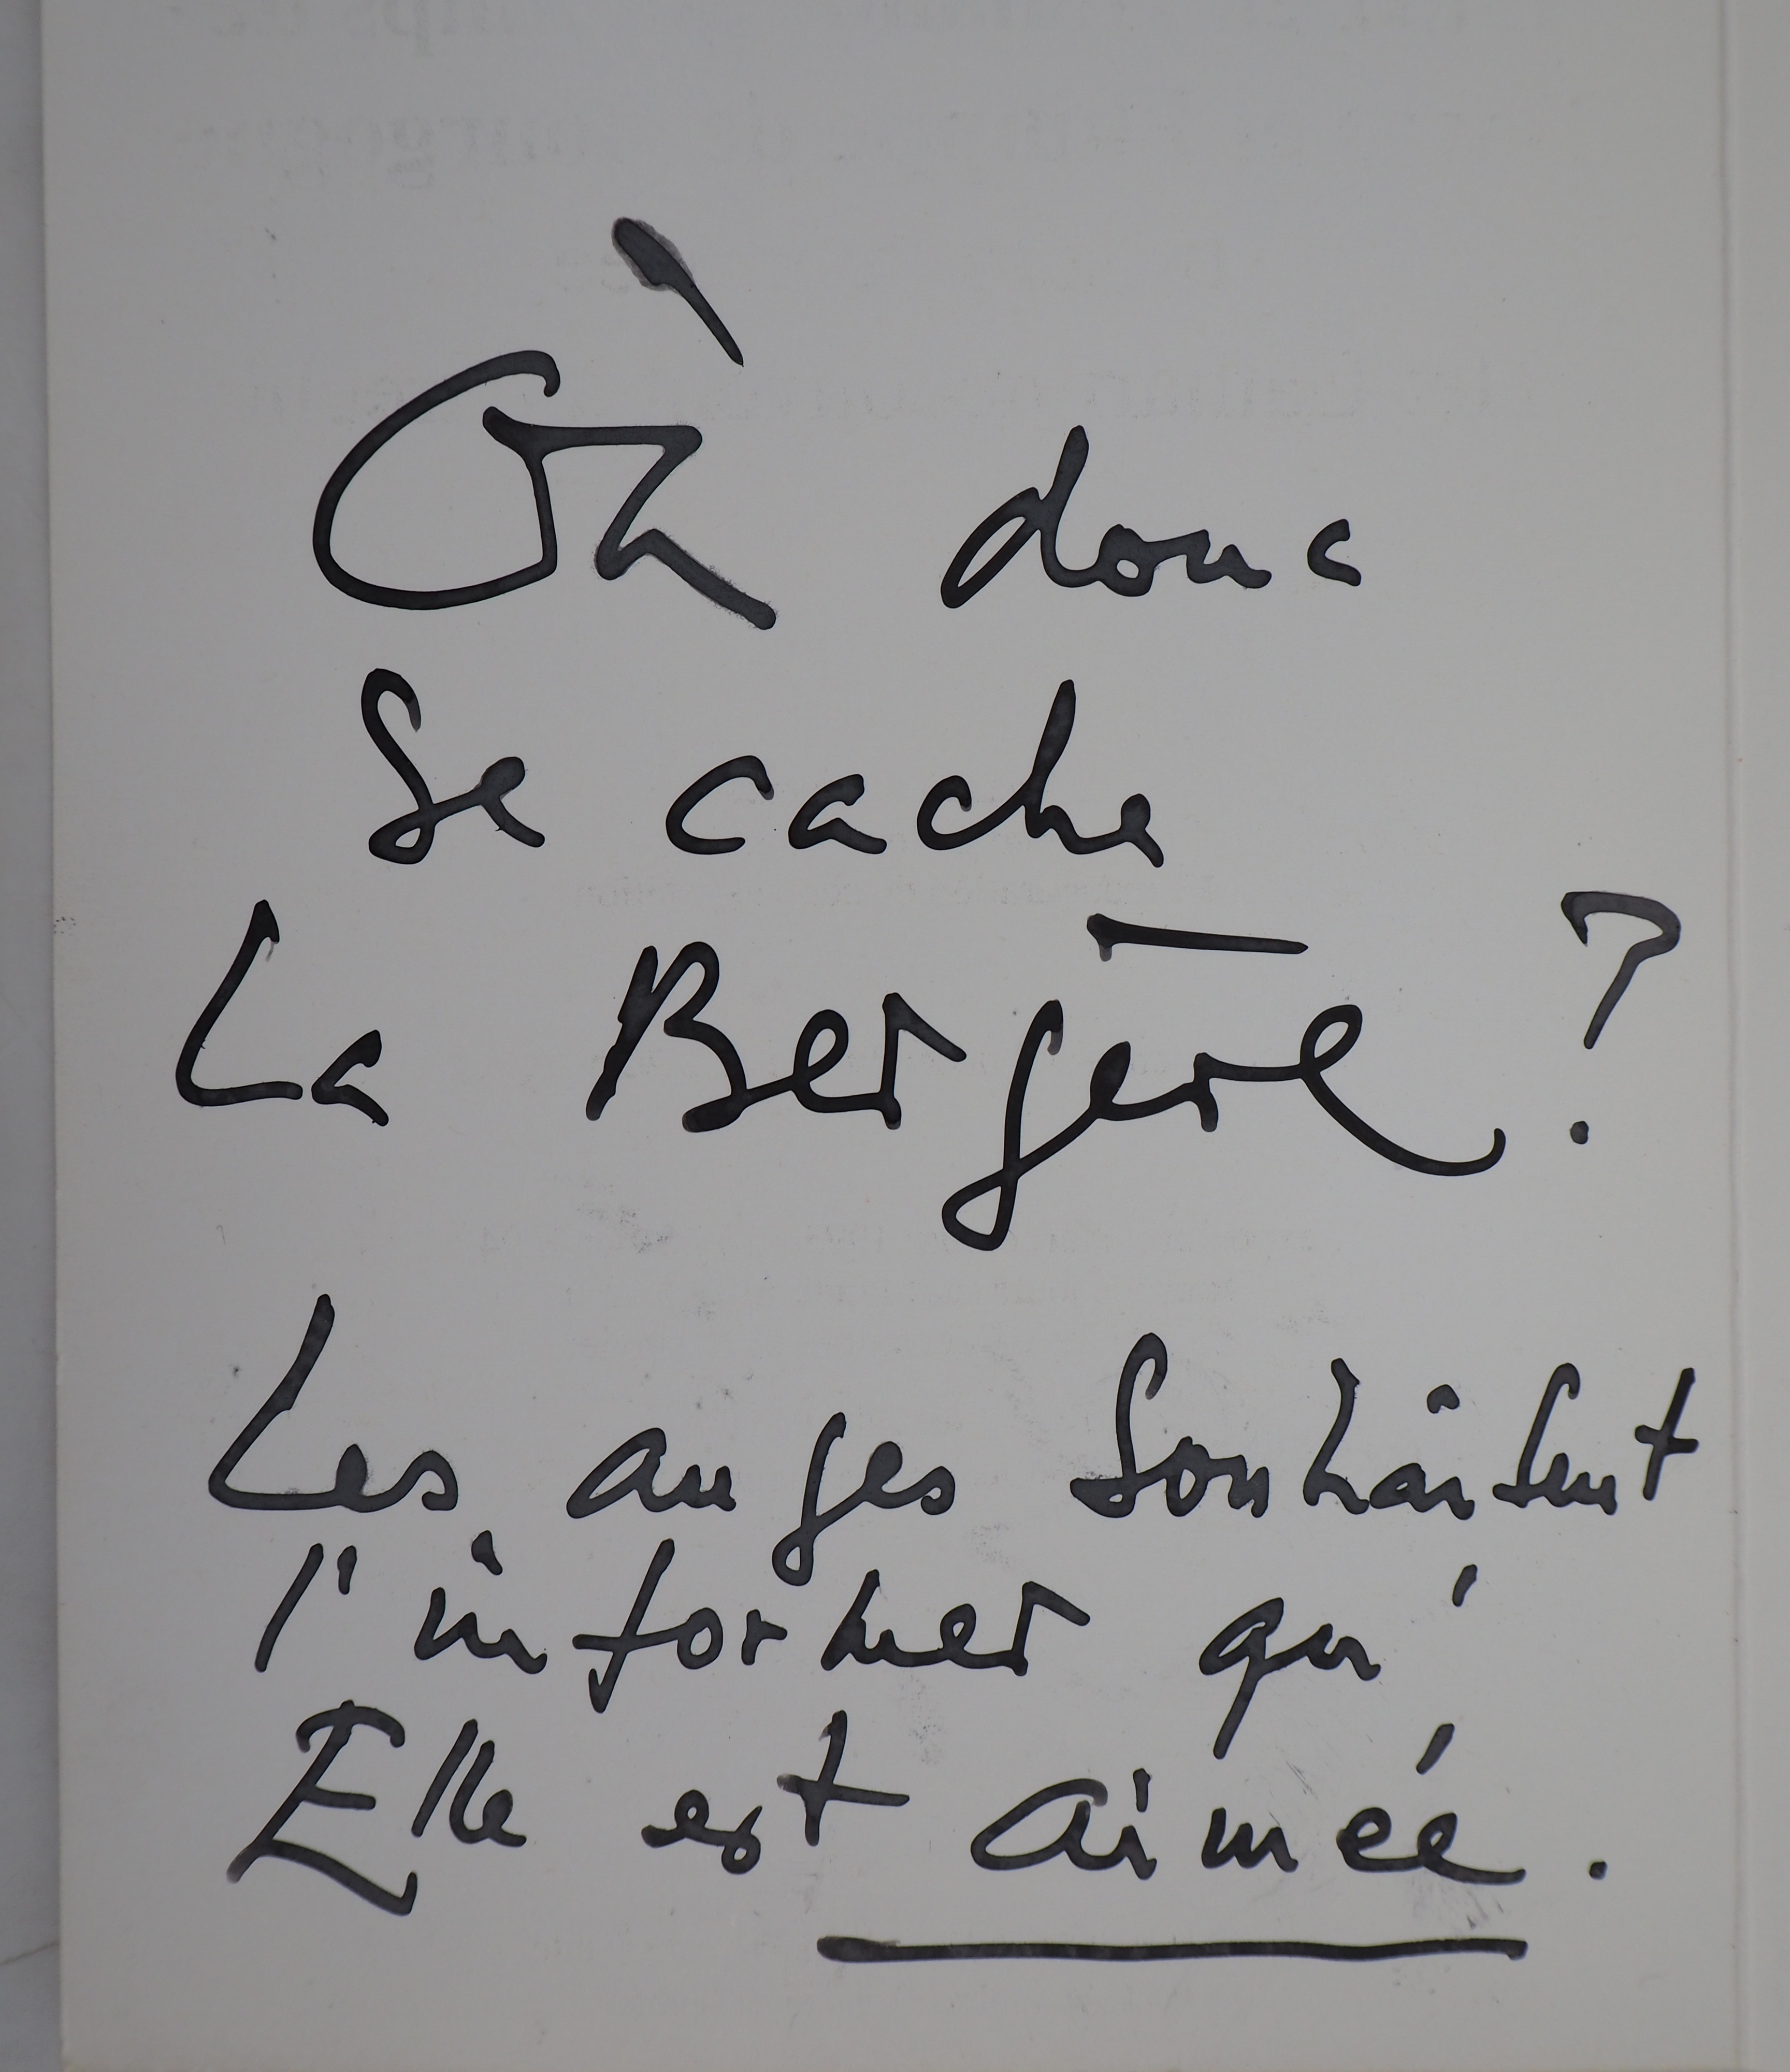 Où donc
Se cache
La Bergère ?
Les anges Souhaitent
l'informer qu'
Elle est aimée.